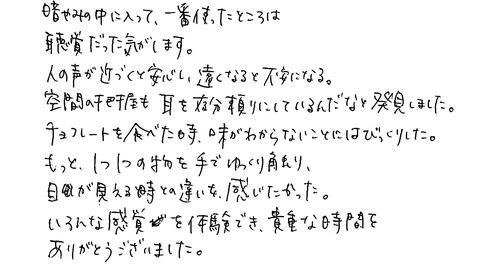 暗やみの中に入って、一番使ったところは
聴覚だった気がします。
人の声が近づくと安心し、遠くなると不安になる。
空間の把握も 耳を存分頼りにしているんだなと発見しました。
チョコレートを食べた時、味がわからないことにはびっくりした。
もっと、1つ1つの物を手でゆっくり触り、
目が見える時との違いを、感じたかった。
いろんな感覚を体験でき、貴重な時間を
ありがとうございました。